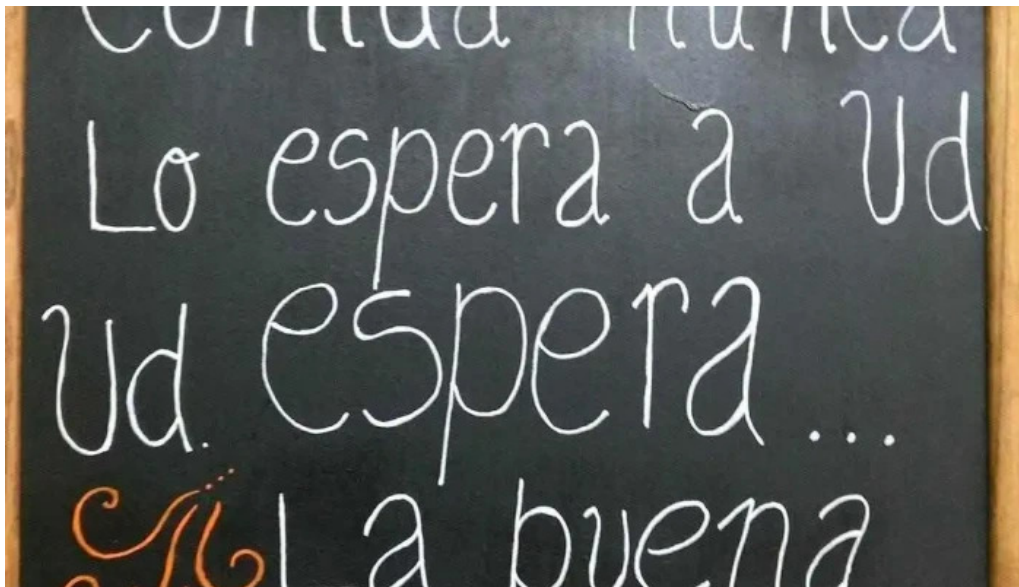 Comida nunca
Lo espera a Ud
Ud. espera...
La buena